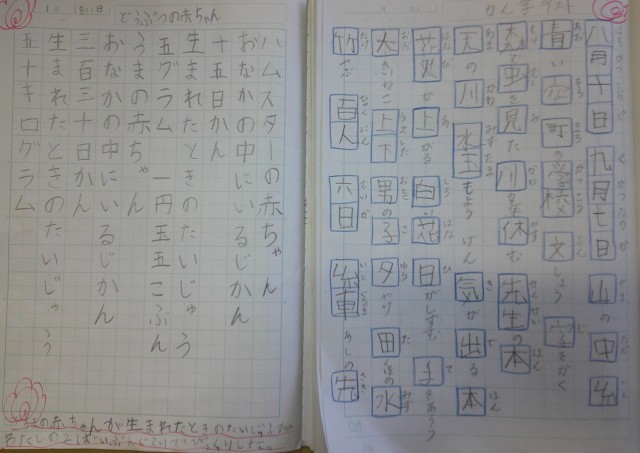 かん字テスト
八月十日 九月七日 山の中
青い空 町の学校 文しょう 字をかく
森で虫を見た 川で休む 先生の本
天の川 水玉もよう げん気が出る 本
花火が上がる 白い花 日がしずむ 手をあらう
大きなねこ 上下 男の子 夕やけ 田んぼの水
竹やぶ 百人 六日 糸車 あしの先
どうぶつの赤ちゃん
ハムスターの赤ちゃん
おなかの中にいるじかん
十五日かん
生まれたときのたいじゅう
五グラム 一円玉五こぶん
うまの赤ちゃん
おなかの中にいるじかん
三百三十日かん
生まれたときのたいじゅう
五十キログラム
の赤ちゃんが生まれたときのたいじゅうが
わたしの ばいぶんぐらいでびっくりした。